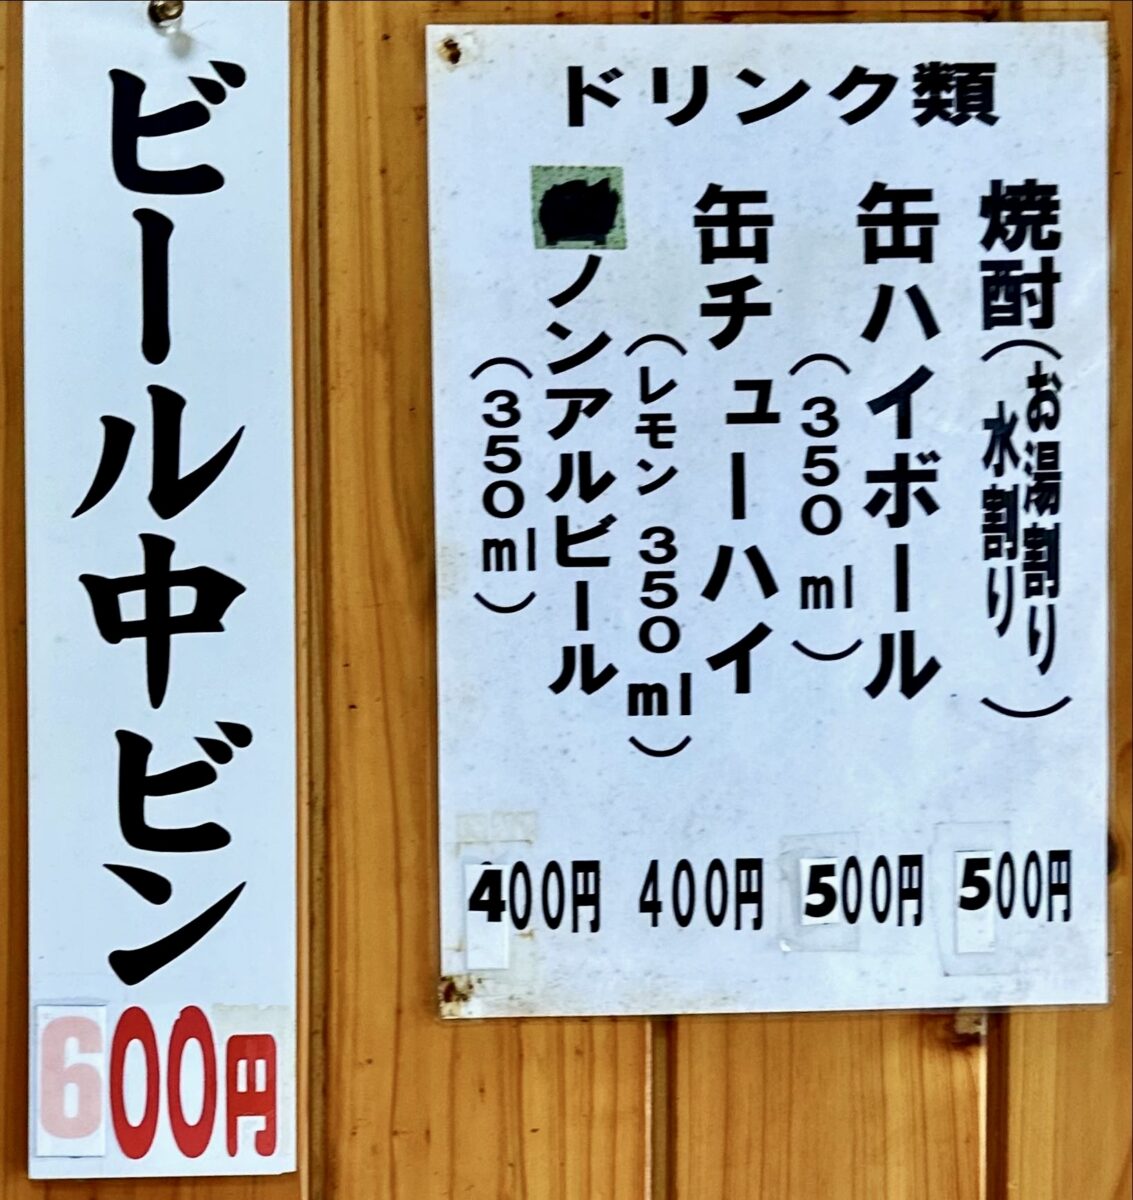 ドリンク類
焼酎(お湯割り
水割り)
500円
缶ハイボール
(350ml)
500円
缶チューハイ
(レモン 350ml)
400円
ノンアルビール
(350ml)
400円
ビール中ビン
600円